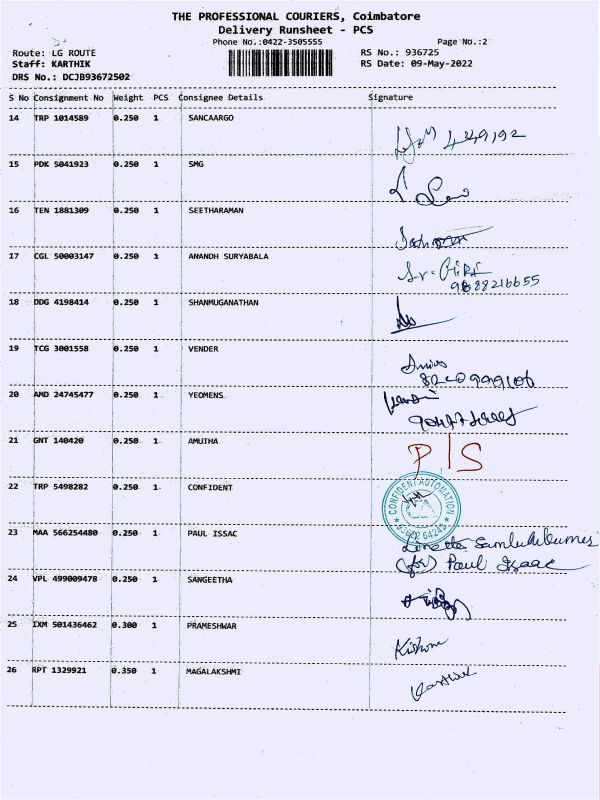 THE PROFESSIONAL COURIERS, Coimbatore
Delivery Runsheet - PCS
Phone No.:0422-3505555 Page No.:2
Route: LG ROUTE RS No.: 936725
Staff: KARTHIK RS Date: 09-May-2022
DRS No.: DCJB93672502
S No Consignment No Weight PCS Consignee Details Signature
14 TRP 1014589 0.250 1 SANCAARGO
15 PDK 5041923 0.250 1 SMG
16 TEN 1881309 0.250 1 SEETHARAMAN
17 CGL 50003147 0.250 1 ANANDH SURYABALA
9688216655
18 DDG 4198414 0.250 1 SHANMUGANATHAN
19 TCG 3001558 0.250 1 VENDER
20 AMD 24745477 0.250 1 YEOMENS
21 GNT 140420 0.250 1 AMUTHA P/S
22 TRP 5498282 0.250 1 CONFIDENT CONFIDENT AUTOMATION
23 MAA 566254480 0.250 1 PAUL ISSAC
(for) Paul Isaac
24 VPL 499009478 0.250 1 SANGEETHA
25 IXM 501436462 0.300 1 PRAMESHWAR Kishore
26 RPT 1329921 0.350 1 MAGALAKSHMI